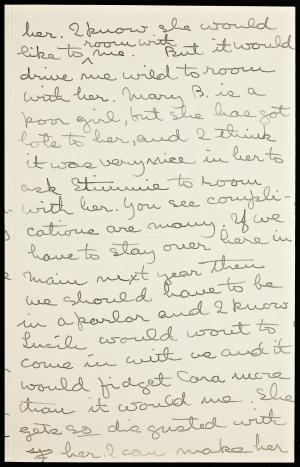 her. I know she would
like to room with me. But it would
drive me wild to room
with her. Mary B. is a
poor girl, but she has got
lots to her, and I think
it was very nice in her to
ask Stimmie to room
with her. You see compli-
cations are many. If we
have to stay over here in
Main next year then
we should have to be
in a parlor and I know
Lucile would want to
come in with us and it
would fidget Cora more
than it would me. She
gets so disgusted with
her. I can make her